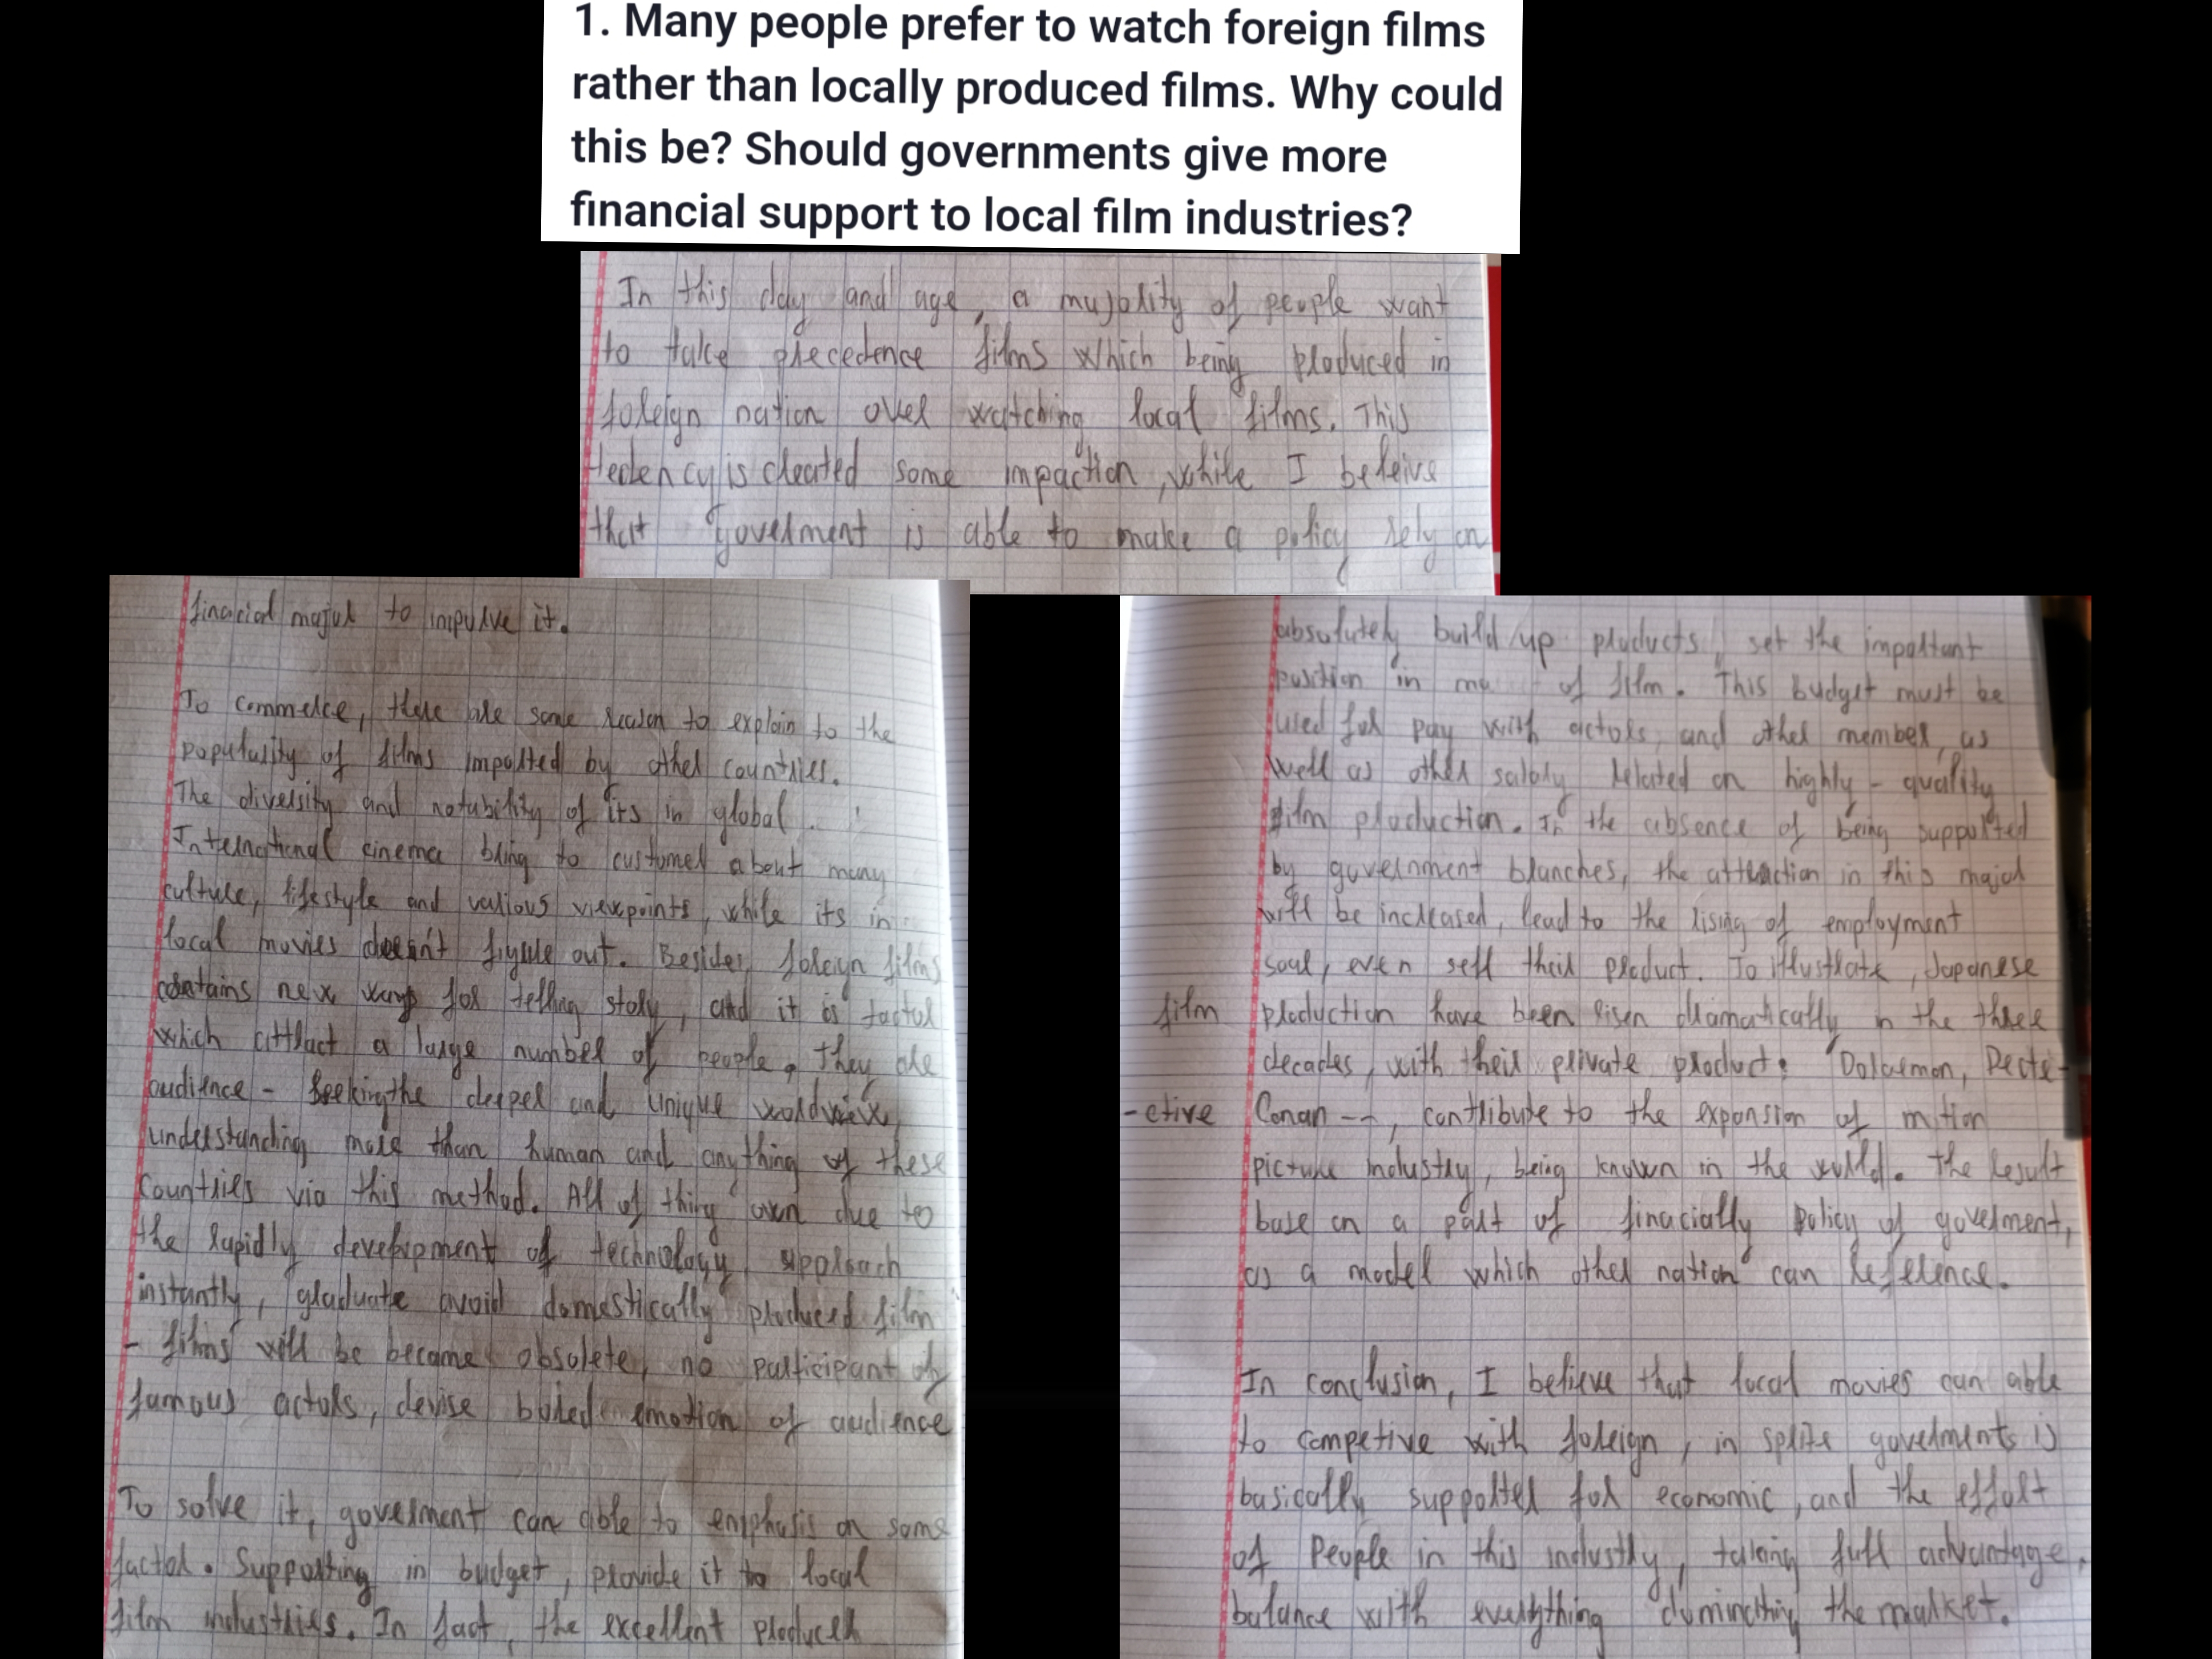 1. Many people prefer to watch foreign films
rather than locally produced films. Why could
this be? Should governments give more
financial support to local film industries?
In this day and age, a majority of people want
to take precedence films which being produced in
foreign nation over watching local films. This
tedency is created some impaction, while I beleive
that goverment is able to make a policy rely on
finacial major to improve it.
To commerce, there are some reason to explain to the
popularity of films imported by other countries.
The diversity and notability of its in global.
International cinema bring to customer about many
culture, lifestyle and various viewpoints, while its in
local movies doesn't figure out. Besides, foreign films
contains new ways for telling story, and it is factor
which attract a large number of people, they are
audience - seeking the deeper and unique worldview,
understanding more than human and anything of these
countries via this method. All of thing own due to
the rapidly development of technology, approach
instantly, graduate avoid domestically produced film
- films will be became obsolete, no participant of
famous actors, devise bored emotion of audience
To solve it, goverment can able to emphasis on some
factor. Supporting in budget, provide it to local
film industries. In fact, the excellent producer
absolutely build up products, set the important
position in of film. This budget must be
used for pay with actors, and other member, as
well as other salary related on highly - quality
film production. In the absence of being supported
by government branches, the attraction in this major
will be increased, lead to the rising of employment
soul, even sell their product. To illustrate, Japanese
film production have been risen dramatically in the three
decades, with their private product: Doraemon, Dete-
-ctive Conan --, contribute to the expansion of motion
picture industry, being known in the world. The result
base on a part of finacially policy of goverment,
as a model which other nation can reference.
In conclusion, I believe that local movies can able
to competive with foreign, in spite goverments is
basically supported for economic, and the effort
of people in this industry, taking full advantage,
balance with everything dominating the market.